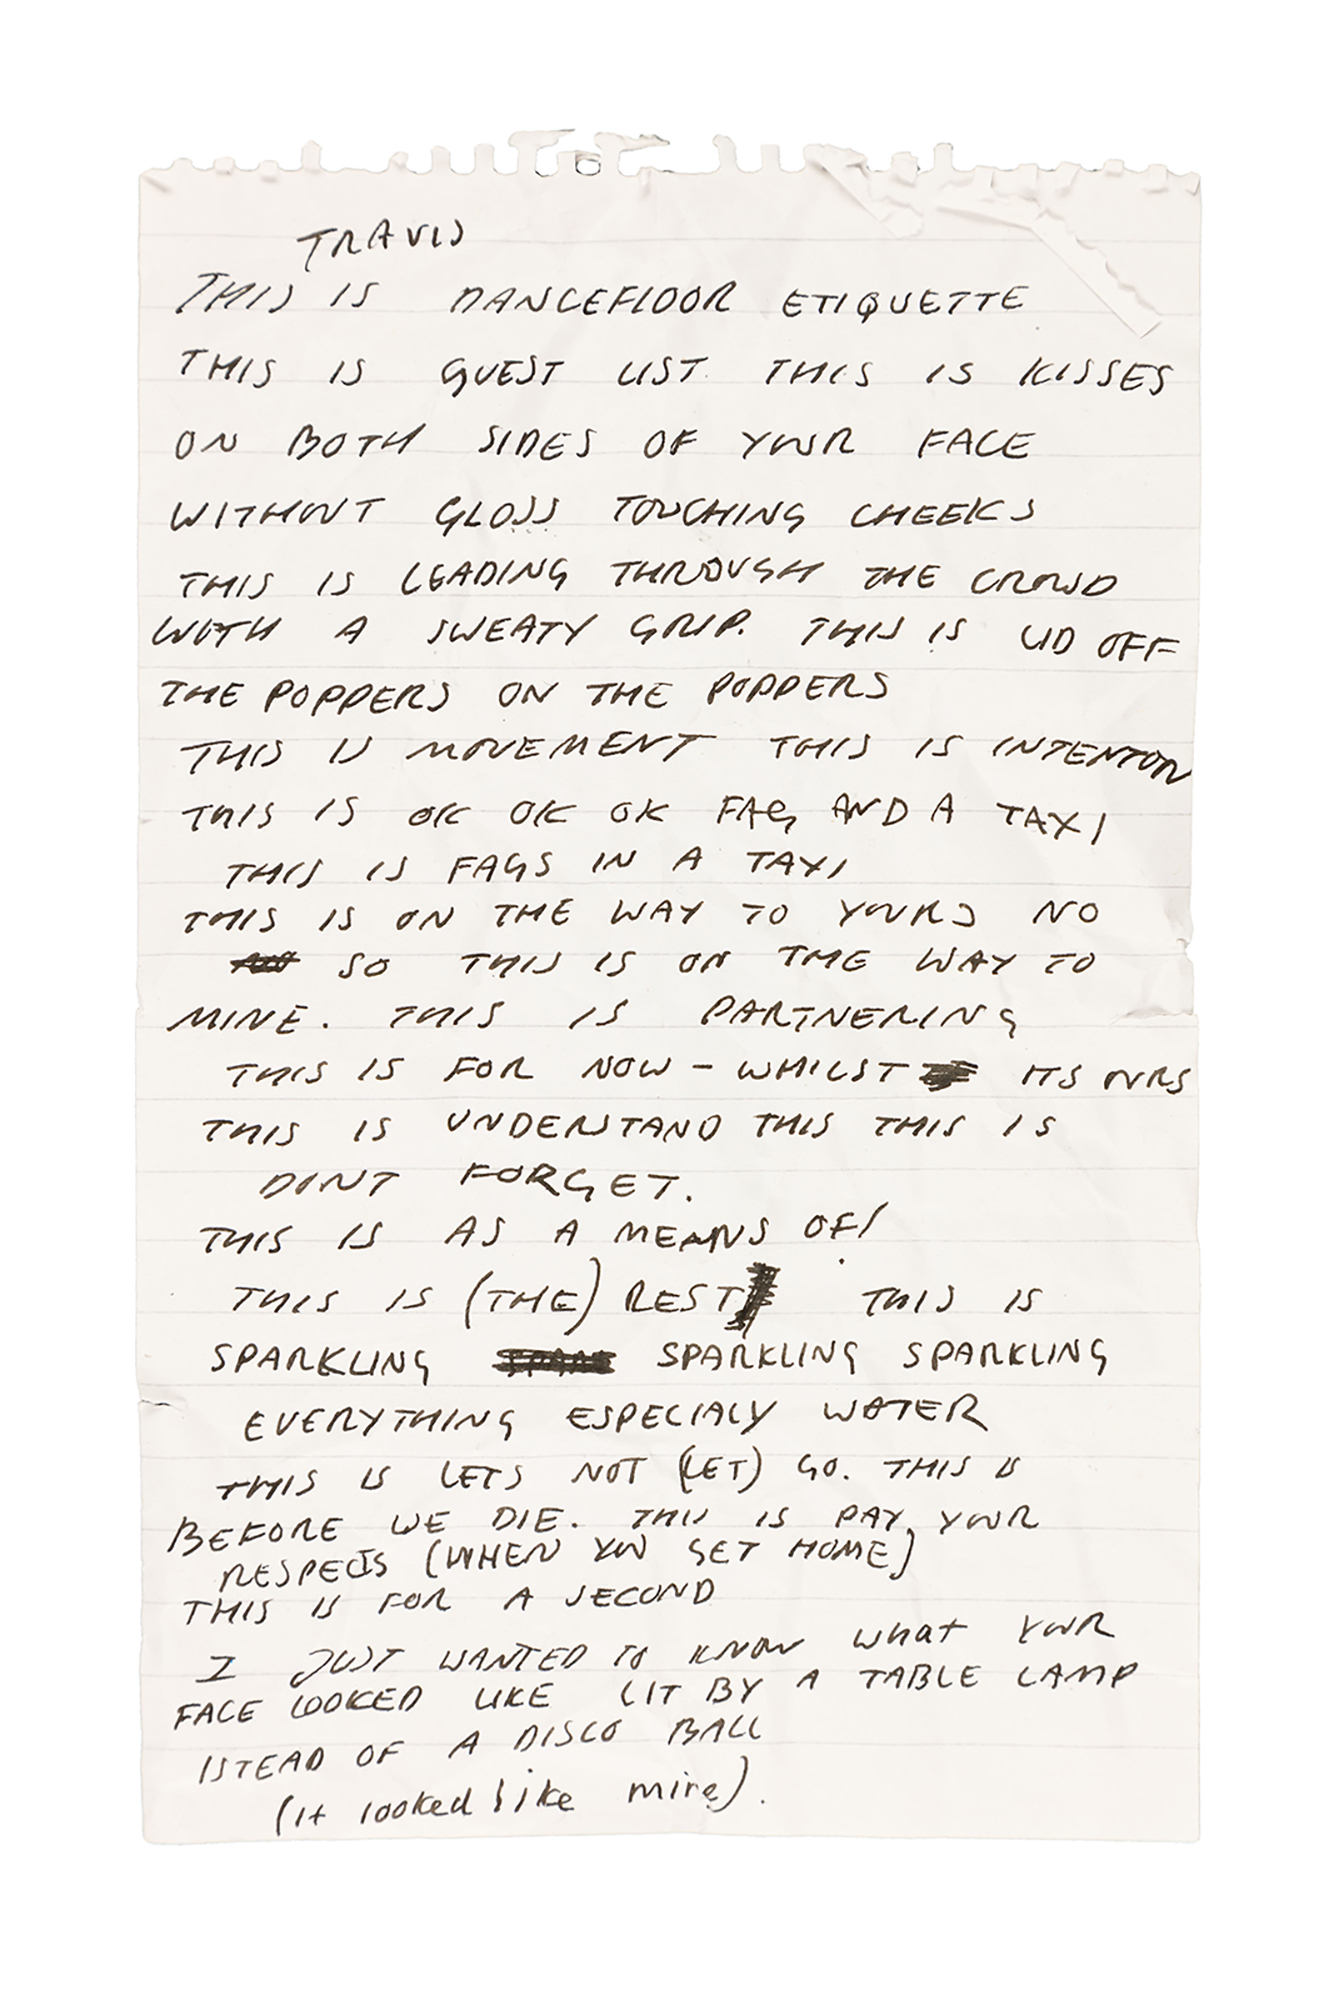 TRAVIS
THIS IS DANCEFLOOR ETIQUETTE
THIS IS GUEST LIST. THIS IS KISSES
ON BOTH SIDES OF YOUR FACE
WITHOUT GLOSS TOUCHING CHEEKS
THIS IS LEADING THROUGH THE CROWD
WITH A SWEATY GRIP. THIS IS LID OFF
THE POPPERS ON THE POPPERS
THIS IS MOVEMENT THIS IS INTENTON
THIS IS OK OK OK FAG AND A TAXI
THIS IS FAGS IN A TAXI
THIS IS ON THE WAY TO YOURS NO
SO THIS IS ON THE WAY TO
MINE. THIS IS PARTNERING
THIS IS FOR NOW – WHILST ITS OURS
THIS IS UNDERSTAND THIS THIS IS
DONT FORGET.
THIS IS AS A MEANS OF!
THIS IS (THE) REST THIS IS
SPARKLING SPARKLING SPARKLING
EVERYTHING ESPECIALY WATER
THIS IS LETS NOT (LET) GO. THIS IS
BEFORE WE DIE. THIS IS PAY YOUR
RESPECTS (WHEN YOU GET HOME)
THIS IS FOR A SECOND
I JUST WANTED TO KNOW what YOUR
FACE LOOKED LIKE LIT BY A TABLE LAMP
ISTEAD OF A DISCO BALL
(it looked like mine).